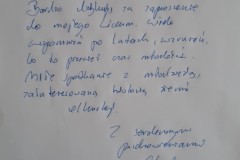 Bardzo dziękuję za zaproszenie
do mojego Liceum. Wiele
wspomnień po latach, wzruszeń,
bo to przecież czas młodości.
Miłe spotkanie z młodzieżą,
zainteresowaną historią ziemi
Z serdecznymi
pozdrowieniami